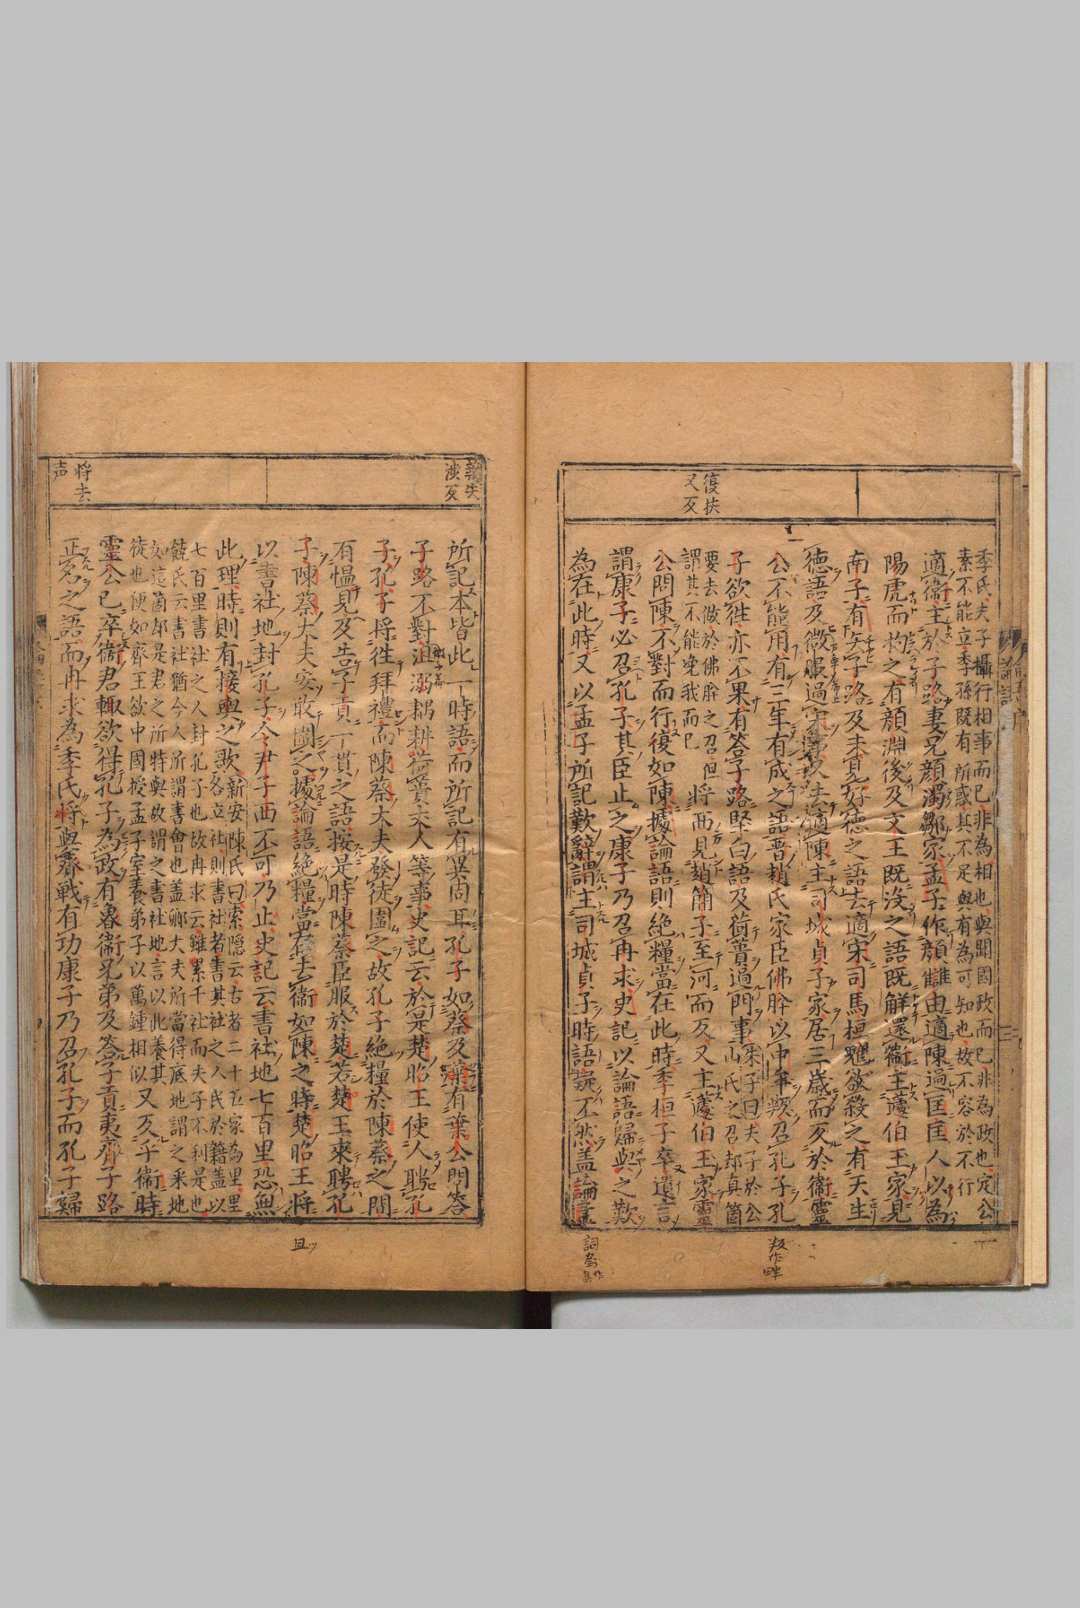 季氏夫子攝行相事而已非為相也與聞國政而已非為政也定公
素不能立季孫既有所惑其不足與有為可知也故不容於不行
適衛主於子路妻兄顔濁鄒家孟子作顔讎由適陳過匡匡人以為
陽虎而拘之有顔淵後及文王既没之語既解還衛主蘧伯玉家見
南子有矢子路及未見好德之語去適宋司馬桓魋欲殺之有天生
德語及微服過宋事又去適陳主司城貞子家居三歳而反於衛靈
公不能用有三年有成之語晋趙氏家臣佛肸以中牟叛召孔子孔
子欲徃亦不果有答子路堅白語及荷蕢過門事
朱子曰夫子於公
山氏之召却真箇
要去做於佛肸之召但
謂其不能浼我而已
將西見趙簡子至河而反又主蘧伯玉家靈
公問陳不對而行復如陳據論語則絶糧當在此時季桓子卒遺言
謂康子必召孔子其臣止之康子乃召冉求史記以論語歸與之歎
為在此時又以孟子所記歎辭謂主司城貞子時語疑不然蓋論孟
復扶
又反
叛作畔
所記本皆此一時語而所記有異同耳孔子如蔡及葉有葉公問答
子路不對沮溺耦耕荷蓧丈人等事史記云於是楚昭王使人聘孔
子孔子將徃拜禮而陳蔡大夫發徒圍之故孔子絶糧於陳蔡之間
有慍見及告子貢一貫之語按是時陳蔡臣服於楚若楚王来聘孔
子陳蔡大夫安敢圍之據論語絶糧當在去衛如陳之時楚昭王將
以書社地封孔子令尹子西不可乃止史記云書社地七百里恐無
此理時則有接輿之歌
新安陳氏曰索隠云古者二十五家為里里
各立社則書社者書其社之人民於籍蓋以
七百里書社之人封孔子也故冉求云雖累千社而夫子不利是也
饒氏云書社猶今人所謂書會也蓋郷大夫所當得底地謂之采地
如這箇却是君之所特與故謂之書社地言以此養其
徒也便如齊王欲中國授孟子室養弟子以萬鍾相似
又反乎衛時
靈公已卒衛君輒欲得孔子為政有魯衛兄弟及答子貢夷齊子路
正名之語而冉求為季氏將與齊戰有功康子乃召孔子而孔子歸
葉失
渉反
將去
声